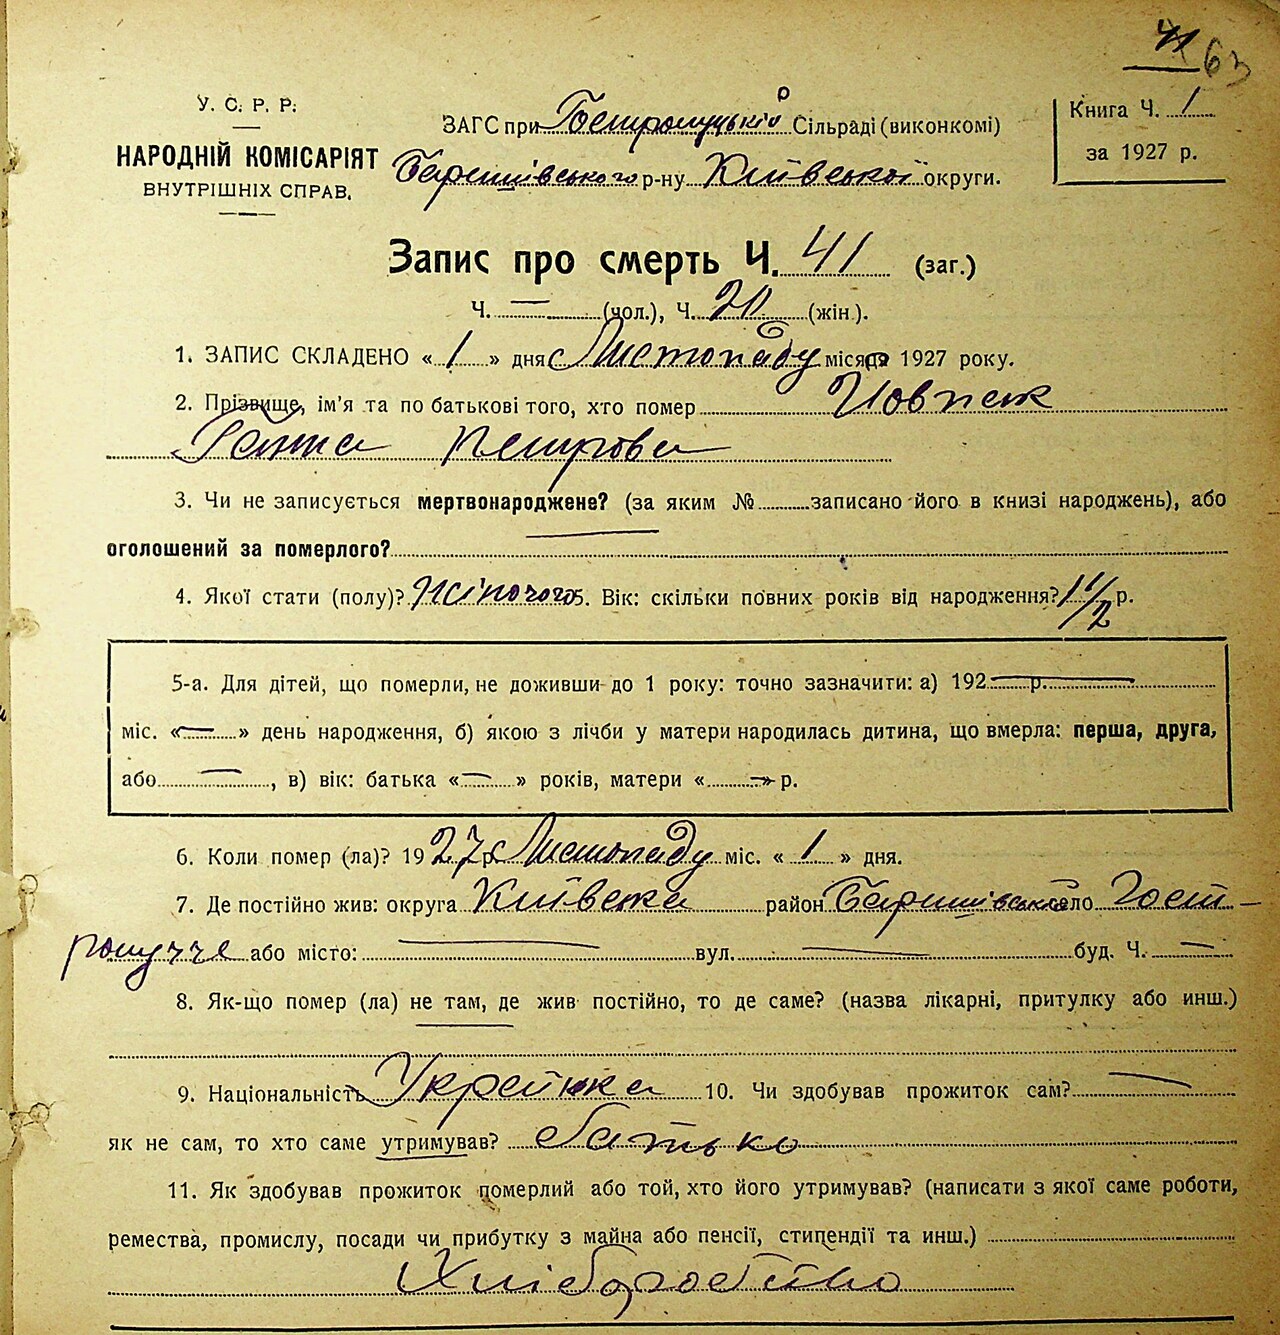 41 63
У. С. Р. Р.
НАРОДНІЙ КОМІСАРІЯТ
ВНУТРІШНІХ СПРАВ.
ЗАГС при Гостролуцькій Сільраді (виконкомі)
Баришівського р-ну Київської округи.
Книга Ч. 1
за 1927 р.
Запис про смерть Ч. 41 (заг.)
Ч. — (чол.), Ч. 20 (жін.).
1. ЗАПИС СКЛАДЕНО « 1 » дня Листопаду місяця 1927 року.
2. Прізвище, ім'я та по батькові того, хто помер
Ганна Петрова
3. Чи не записується мертвонароджене? (за яким № записано його в книзі народжень), або
оголошений за померлого?
4. Якої стати (полу)? Жіночого 5. Вік: скільки повних років від народження? 1 1/2 р.
5-а. Для дітей, що померли, не доживши до 1 року: точно зазначити: а) 192 — р.
міс. « — » день народження, б) якою з лічби у матери народилась дитина, що вмерла: перша, друга,
або — , в) вік: батька « — » років, матери « — » р.
6. Коли помер (ла)? 1927 р. Листопаду міс. « 1 » дня.
7. Де постійно жив: округа Київська район Баришівський село Гост-
ролуччє або місто: — вул. — буд. Ч. —
8. Як-що помер (ла) не там, де жив постійно, то де саме? (назва лікарні, притулку або инш.)
9. Національність Украінка 10. Чи здобував прожиток сам? —
як не сам, то хто саме утримував? батько
11. Як здобував прожиток померлий або той, хто його утримував? (написати з якої саме роботи,
ремества, промислу, посади чи прибутку з майна або пенсії, стипендії та инш.)
Хліборобство